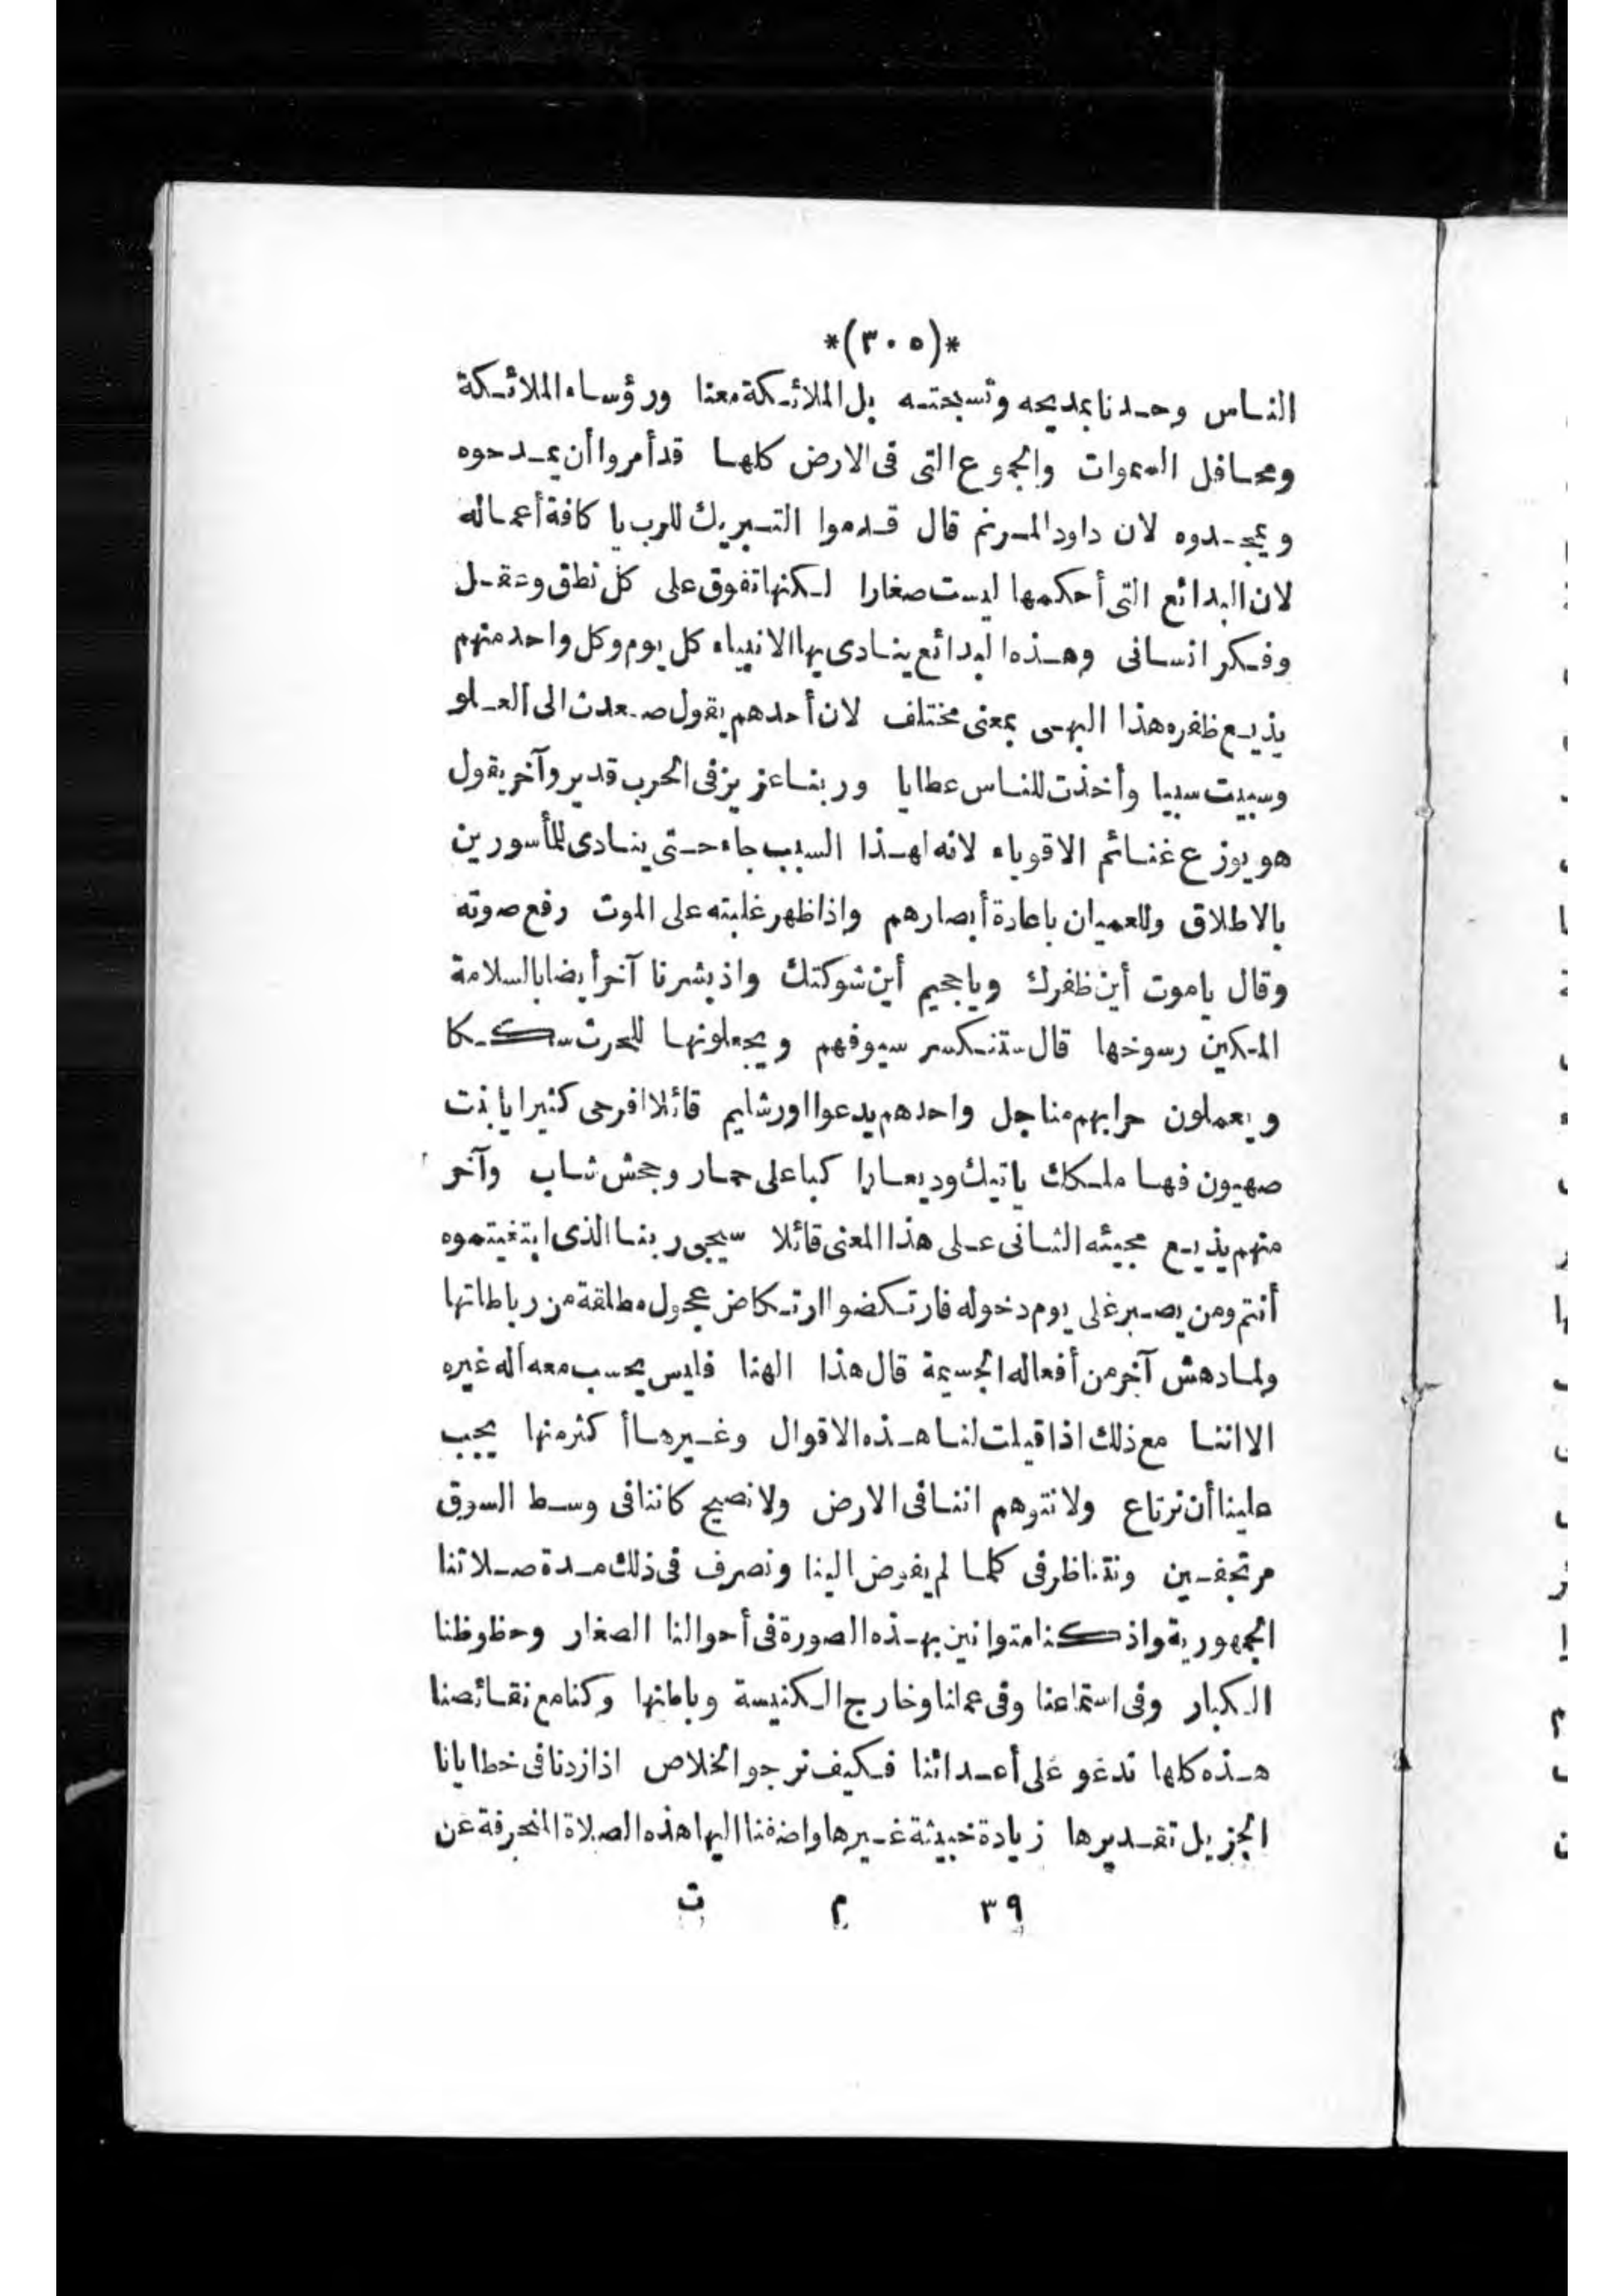 *(٣٠٥)*
الناس وحدنا بمديحه وتسبحته بل الملائكة معنا ورؤساء الملائكة
ومحافل السموات والجموع التى فى الارض كلها قد أمروا أن يمدحوه
ويمجدوه لان داود المرنم قال قدموا التبريك للرب يا كافة أعماله
لان البدائع التى أحكمها ليست صغارا لكنها تفوق على كل نطق وعقل
وفكر انسانى وهذه البدائع ينادى بها الانبياء كل يوم وكل واحد منهم
يذيع ظفره هذا البهى بمعنى مختلف لان أحدهم يقول صعدت الى العلو
وسبيت سبيا وأخذت للناس عطايا وربنا عزيز فى الحرب قدير وآخر يقول
هو يوزع غنائم الاقوياء لانه لهذا السبب جاء حتى ينادى للمأسورين
بالاطلاق وللعميان باعادة أبصارهم واذا ظهر غلبته على الموت رفع صوته
وقال ياموت أين ظفرك وياجحيم أين شوكتك واذ بشرنا آخر أيضا بالسلامة
المكين رسوخها قال ستنكسر سيوفهم ويجعلونها للحرث سككا
ويعملون حرابهم مناجل واحدهم يدعوا اورشليم قائلا افرحى كثيرا يا بنت
صهيون فها ملكك ياتيك وديعا راكبا على حمار وجحش شاب وآخر
منهم يذيع مجيئه الثانى على هذا المعنى قائلا سيجى ربنا الذى ابتغيتموه
أنتم ومن يصبر على يوم دخوله فارتكضوا ارتكاض عجول مطلقة من رباطاتها
ولما دهش آخر من أفعاله الجسيمة قال هذا الهنا فليس يحسب معه اله غيره
الا اننا مع ذلك اذا قيلت لنا هذه الاقوال وغيرها أكثر منها يجب
علينا أن نرتاع ولا نتوهم اننا فى الارض ولا نصيح كاننا فى وسط السوق
مرتجفين ونتناظر فى كلما لم يفوض الينا ونصرف فى ذلك مدة صلاتنا
الجمهورية واذ كنا متوانين بهذه الصورة فى أحوالنا الصغار وحظوظنا
الكبار وفى استماعنا وفى عملنا وخارج الكنيسة وباطنها وكنا مع نقائصنا
هذه كلها ندعو على أعدائنا فكيف نرجو الخلاص اذا زدنا فى خطايانا
الجزيل تقديرها زيادة خبيثة غيرها واضفنا اليها هذه الصلاة المنحرفة عن
٣٩ م ت